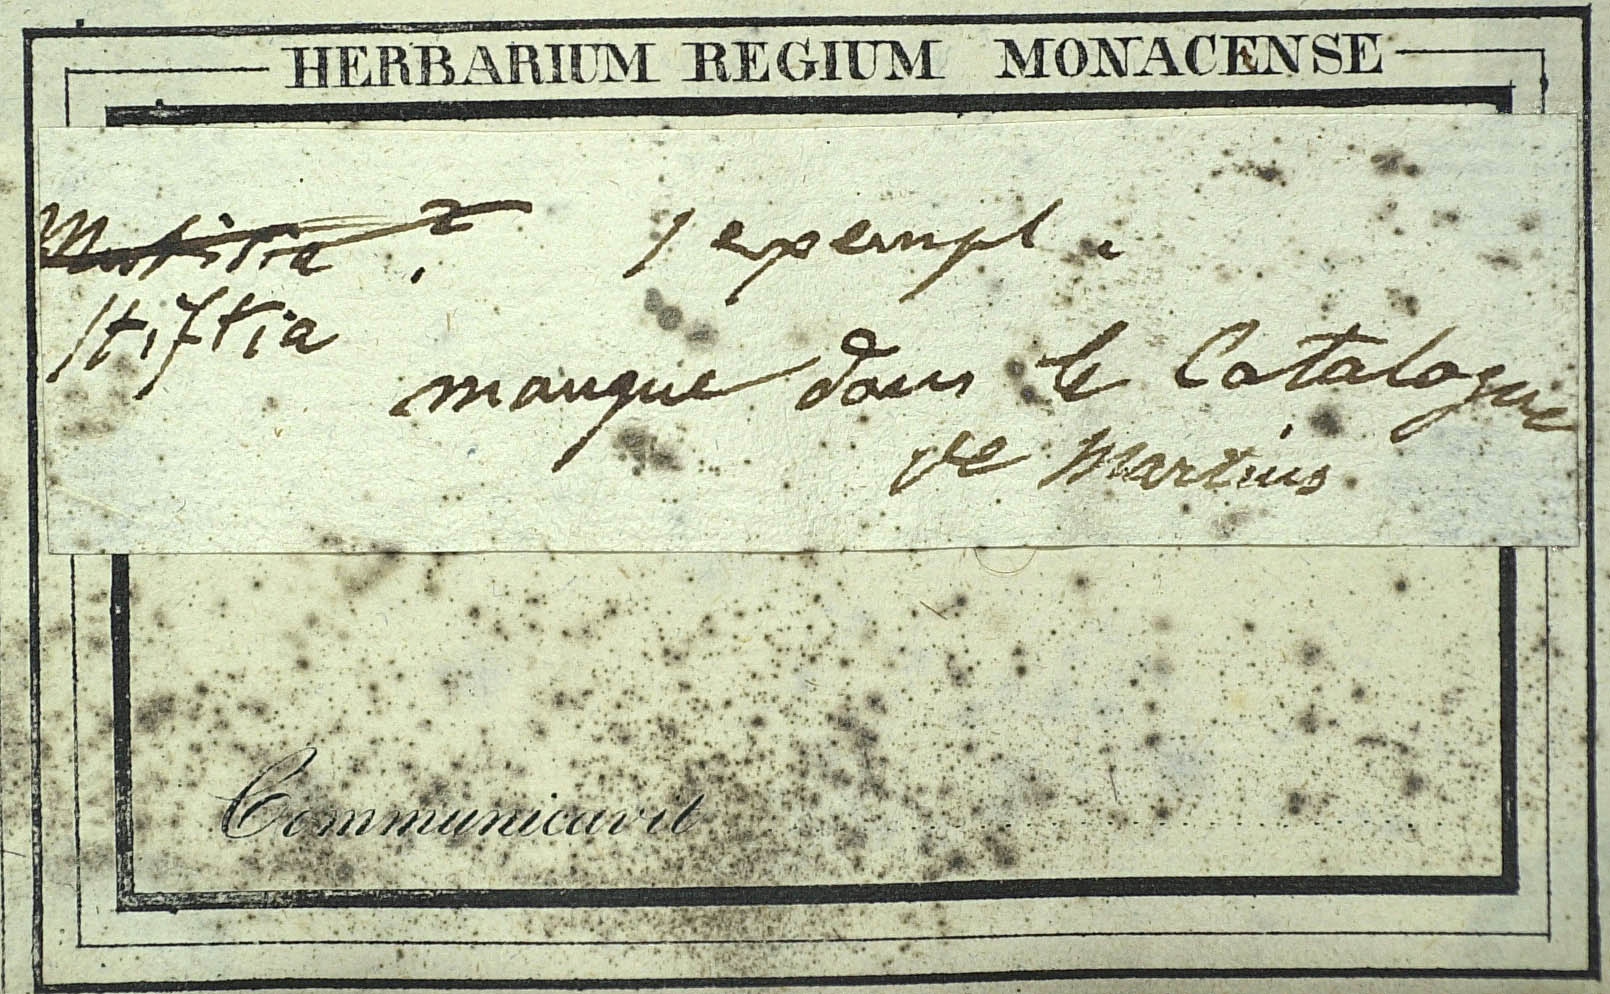 HERBARIUM REGIUM MONACENSE
Mutisia ? 1 exempl.
Stiftia
manque dans le Catalogue
de Martius
Communicavit